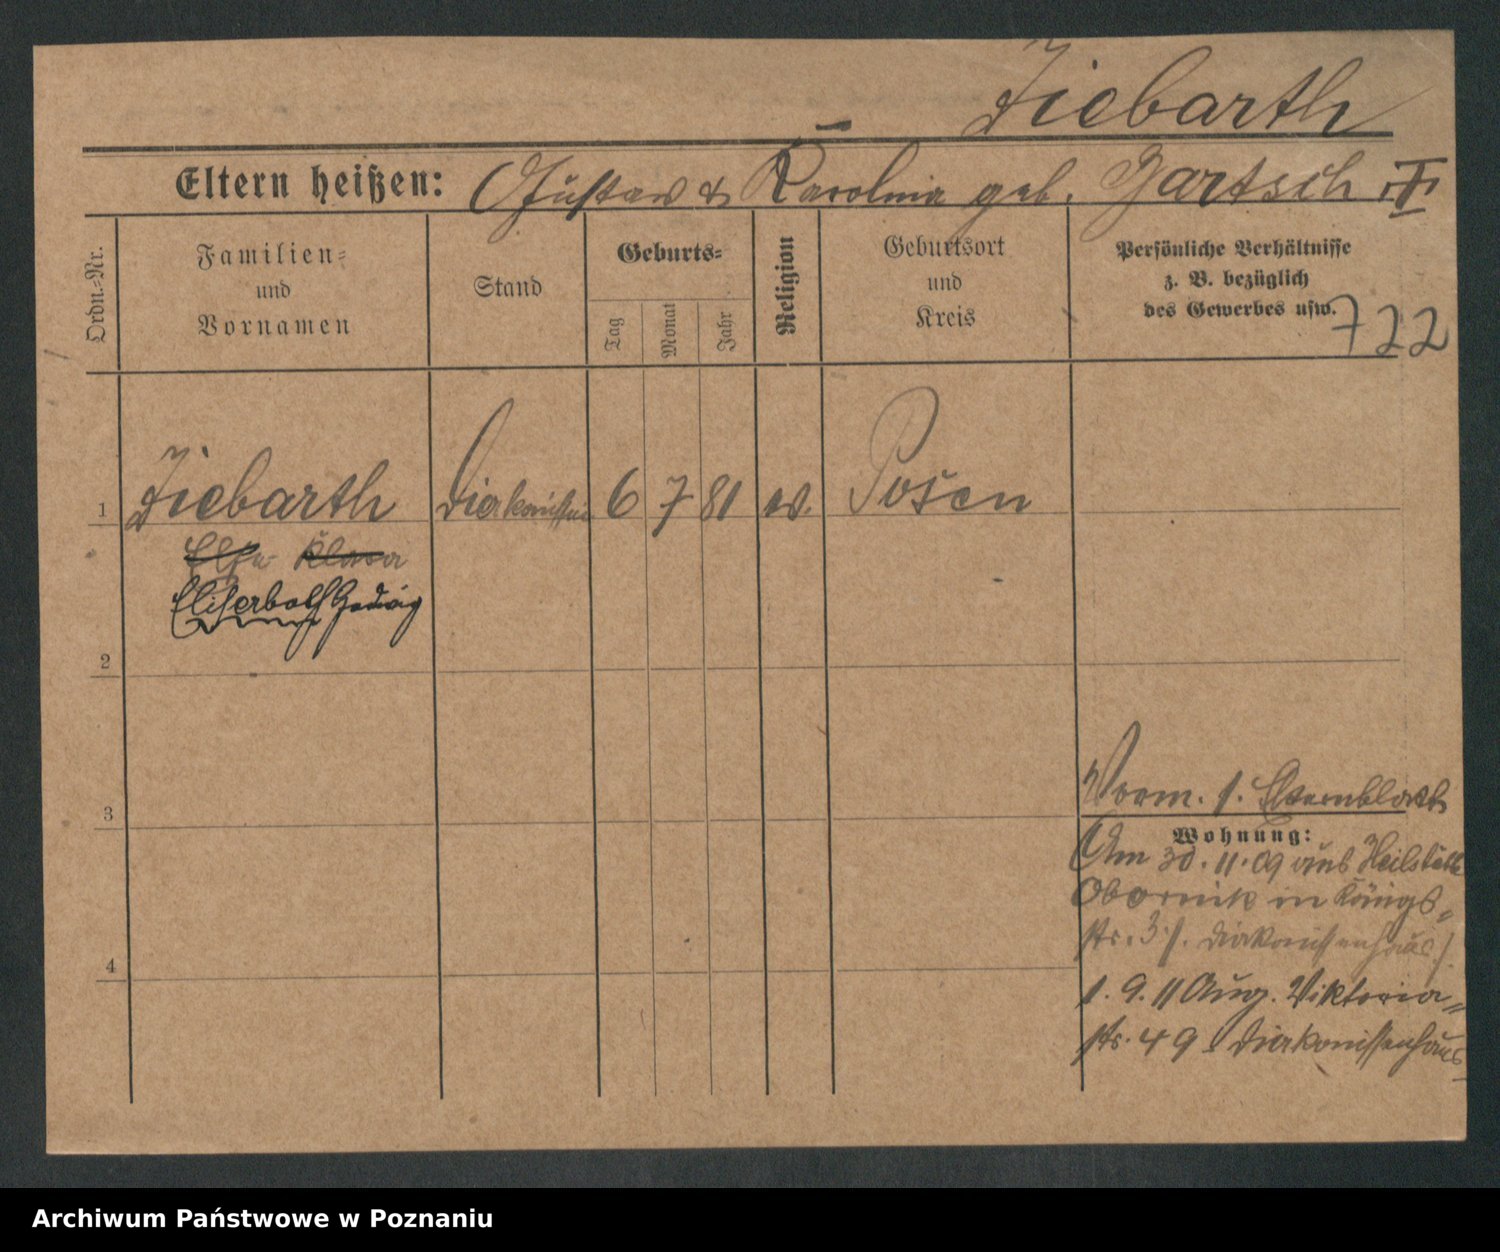 Ziebarth
Eltern heißen: Gustav & Karolina geb. Gartsch
Ordn.-Nr.
Familien- und Vornamen
Stand
Geburts-
Tag
Monat
Jahr
Religion
Geburtsort und Kreis
Persönliche Verhältnisse
z. B. bezüglich
des Gewerbes usw.
722
1 Ziebarth Diakonissin 6 7 81 ev. Posen
Else Klara
Elisabeth Hedwig
2
3
4
Vorm. s. Elternblatt
Wohnung:
Am 30.11.09 aus Heilstätte
Obornik in Königs-
str. 3 /. Diakonissenhaus /.
1. 9. 11 Aug. Viktoria-
str. 49 Diakonissenhaus
Archiwum Państwowe w Poznaniu